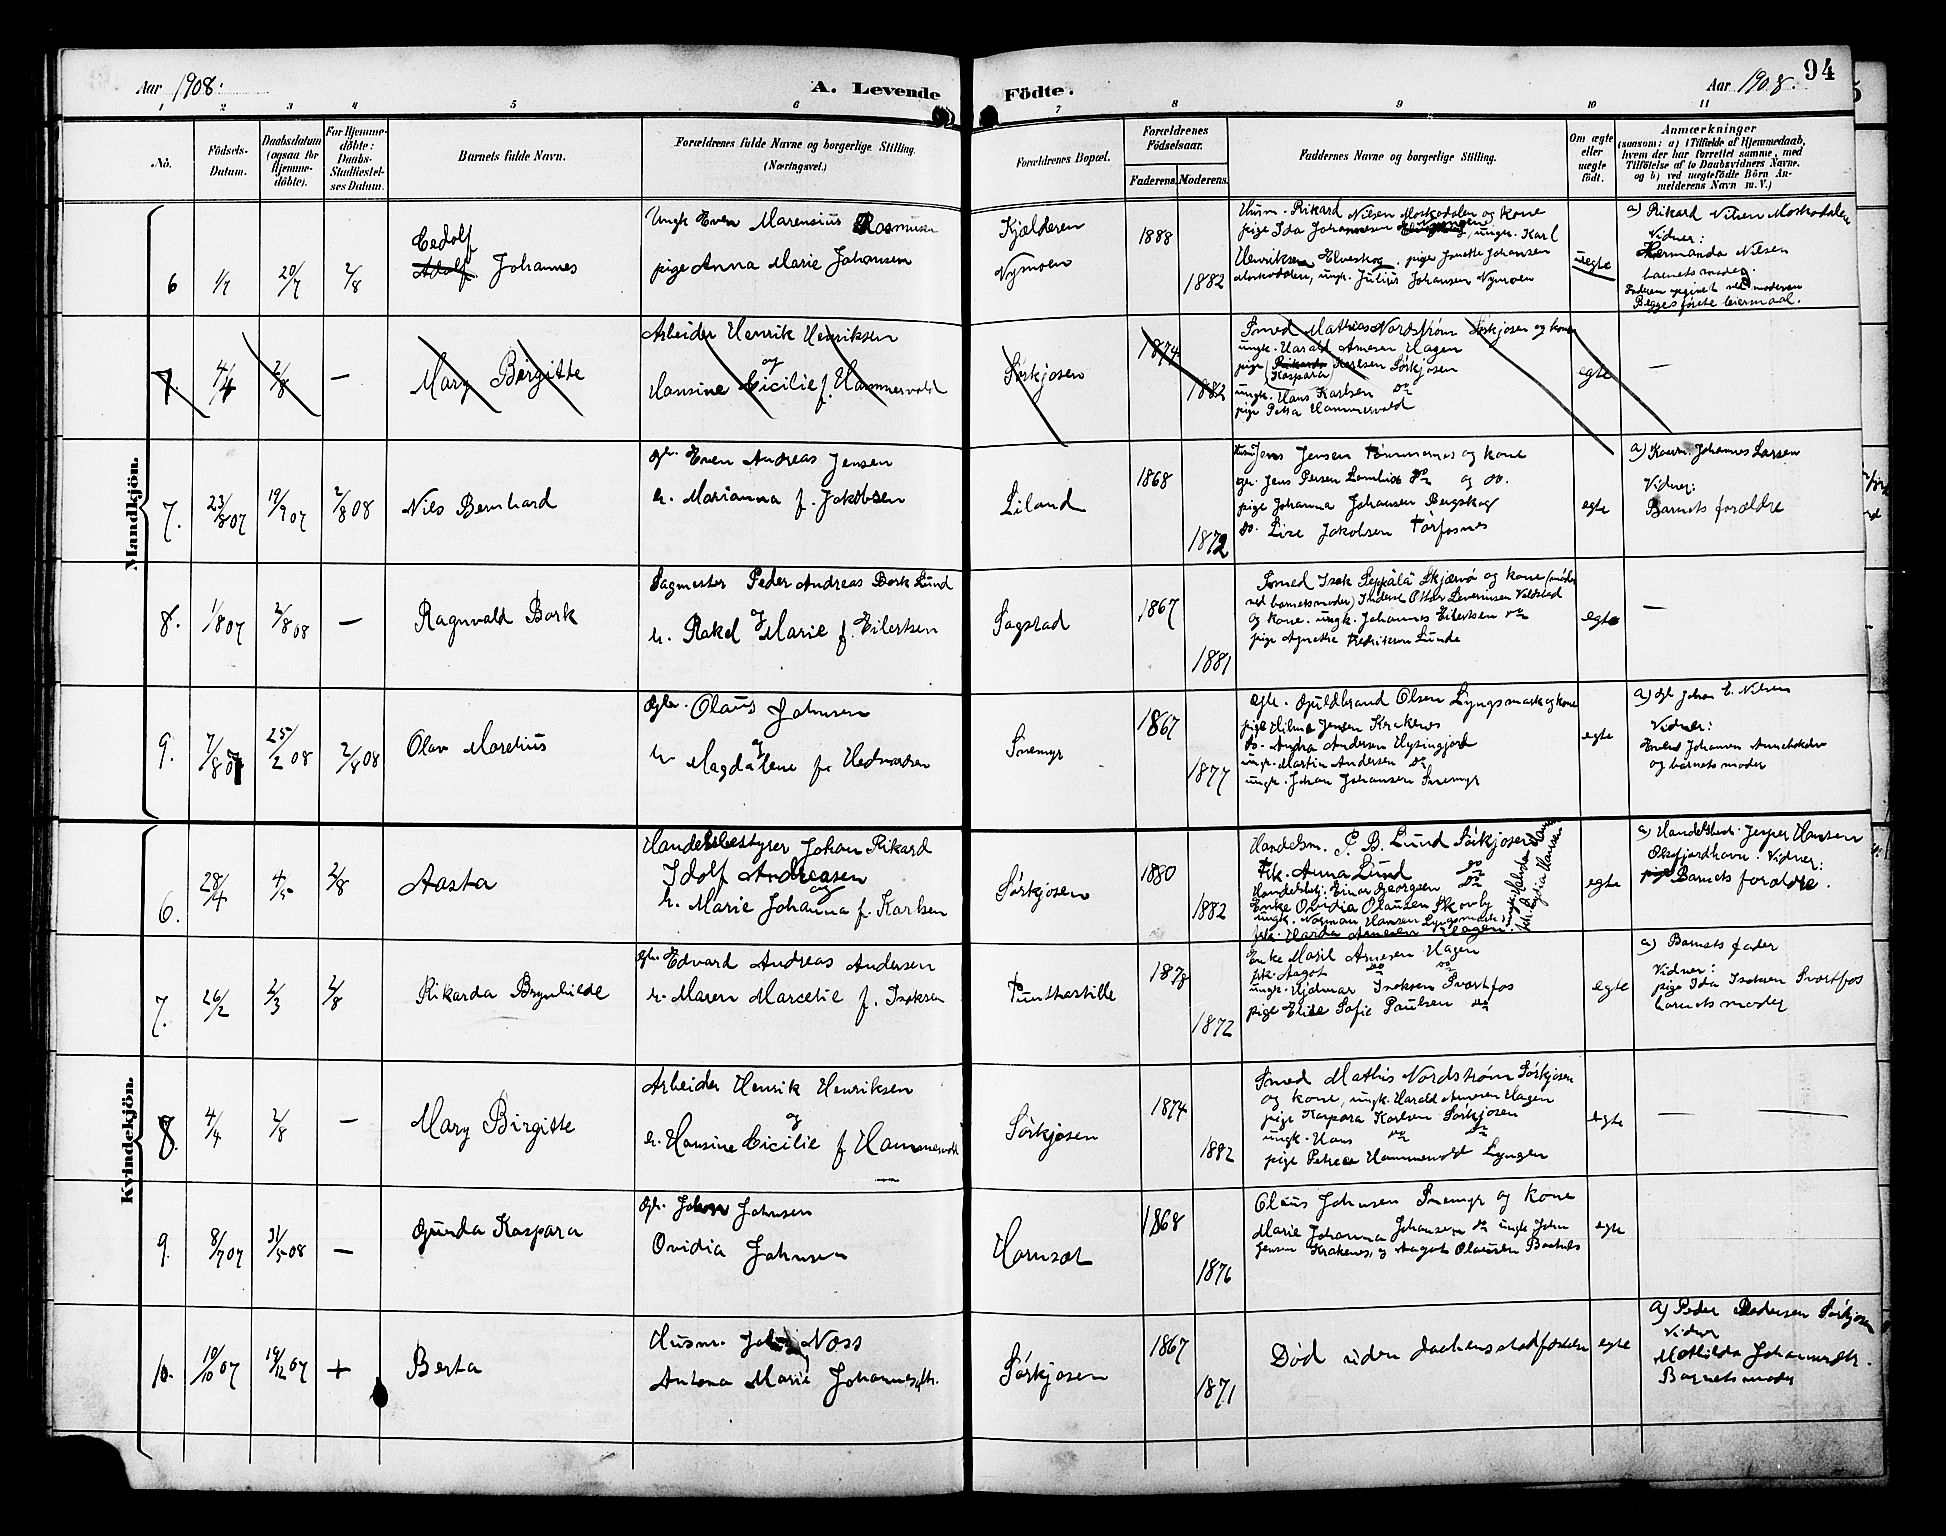 Aar 1908.
A. Levende
Födte.
Aar 1908.
94
1 2 3 4 5 6 7 8 9 10 11
No.
Födsels-
Datum.
Daabsdatum
(ogsaa for
Hjemme-
döbte).
For Hjemme-
döbte:
Daabs-
Stadfæstel-
ses Datum.
Barnets fulde Navn.
Forældrenes fulde Navne og borgerlige Stilling.
(Næringsvei.)
Forældrenes Bopæl.
Forældrenes
Födselsaar.
Faderens. Moderens.
Faddernes Navne og borgerlige Stilling.
Om ægte
eller
uægte
födt.
Anmærkninger
(saasom: a) i Tilfælde af Hjemmedaab,
hvem der har forrettet samme, med
Tilföielse af to Daabsvidners Navne.
og b) ved uægtefödte Börn An-
melderens Navn m. V.)
Mandkjön.
6 1/7 20/7 2/8
Cedolf
Adolf Johannes
Ungk Even Marensius Rasmusen
pige Anna Marie Johansen
Kjælderen
Nymoen
1888
1882
Husm. Rikard Nilsen Moskodalen og kone
pige Ida Johannesen, ungk. Karl
Henriksen Elveskog, pige Janette Johansen
Moskodalen, ungk. Julius Johansen Nymoen
uegte
a) Rikard Nilsen Moskodalen
Vidner:
Hermanda Nilsen
barnets moder
Faderen opgivet ved moderen
Begges förste leiermaal.
7. 4/4 2/8 —
Mary Birgitte
Arbeider Henrik Henriksen
og
Hansine Cicilie f. Hammervold
Sørkjosen
1874
1882
Smed Mathias Nordstrøm Sørkjosen og kone
ungk. Harald Arnesen Hagen
pige (Rikarda Kaspara) Karlsen Sørkjosen
ungk. Hans Karlsen do
pige Petra Hammervold
egte
—
7. 23/8 07 19/9 07 2/8 08
Nils Bernhard
Gbr. Even Andreas Jensen
h. Marianna f. Jakobsen
Liland
1868
1872
Husm Jens Jensen Tömmernes og kone
gbr. Jens Persen do og do.
pige Johanna Johansen Bergskog
do. Lise Jakobsen Torfosnes
egte
a) Kaarn. Johannes Larsen
Vidner:
Barnets forældre
8. 1/8 07 2/8 08 —
Ragnvald Bork
Sagmester Peder Andreas Bork Lund
og
h. Rakel Marie f. Eilertsen
Sagstad
1867
1881
Smed Isak Seppälä Skjærvö og kone (möder
ved barnets moder) Inderst Ottar Severinsen Valdstad
og kone. ungk. Johannes Eilertsen do
pige Agnethe Fredriksen Lunde
egte
—
9. 7/8 07 25/2 08 2/8 08
Olav Marelius
Gbr. Olaus Johnsen
og
h. Magdalene f. Hedvardsen
Snemyr
1867
1877
Gbr. Guldbrand Olsen Lyngsmark og kone
pige Hilma Jensen Krakenes
do. Andra Andersen Hysingjord
ungk. Martin Andersen do
ungk. Johan Johansen Snemyr
egte
a) Gbr Johan E. Nilsen
Vidner:
Johansen
og barnets moder
Kvindekjön.
6. 28/4 4/5 2/8
Aasta
Handelsbestyrer Johan Rikard
Idolf Andreasen
og
h. Marie Johanna f. Karlsen
Sørkjosen
1880
1882
Handelsm. P. B. Lund Sørkjosen
Frk. Anna Lund do
Handelsbetj. Einar Georgsen do
Enke Ovidia Olausen Skovby
ungk. Norman Hansen Lyngsmark
frk. Harda Arnesen Hagen.
egte
a) Handelsbest. Jesper Hansen
Oksfjordhavn. Vidner:
Barnets forældre.
7. 26/2 2/3 2/8
Rikarda Brynhilde
Gbr. Edvard Andreas Andersen
h. Maren Marcelie f. Isaksen
Punthastille
1878
1872
Enke Maril Arnesen Hagen
frk. Aagot do do
ungk. Hjalmar Isaksen Svartfos
pige Elise Sofie Paulsen do
egte
a) Barnets fader
Vidner:
pige Ida Isaksen Svartfos
barnets moder
8. 4/4 2/8 —
Mary Birgitte
Arbeider Henrik Henriksen
og
h. Hansine Cicilie f. Hammervold
Sørkjosen
1874
1882
Smed Mathis Nordstrøm Sørkjosen
og kone, ungk. Harald Arnesen Hagen
pige Kaspara Karlsen Sørkjosen
ungk. Hans do do
pige Petrea Hammervold Lyngen
egte
— —
9. 8/7 07 31/5 08 —
Gunda Kaspara
Gbr. Johan Johnsen
Ovidia Johnsen
Hamsæt
1868
1876
Olaus Johnsen Snemyr og kone
Marie Johanna Johansen do ungk John
Jensen Krakenes, og Aagot Olausen Bakeby
egte
10. 10/10 07 19/12 07 +
Berta
Husm. Johan Noss
Antona Marie Johannesdtr.
Sørkjosen
1867
1871
Død uden daabens stadfæstelse
egte
a) Peder Pedersen Sørkjosen
Vidner
Mathilda Johannesdtr.
Barnets moder